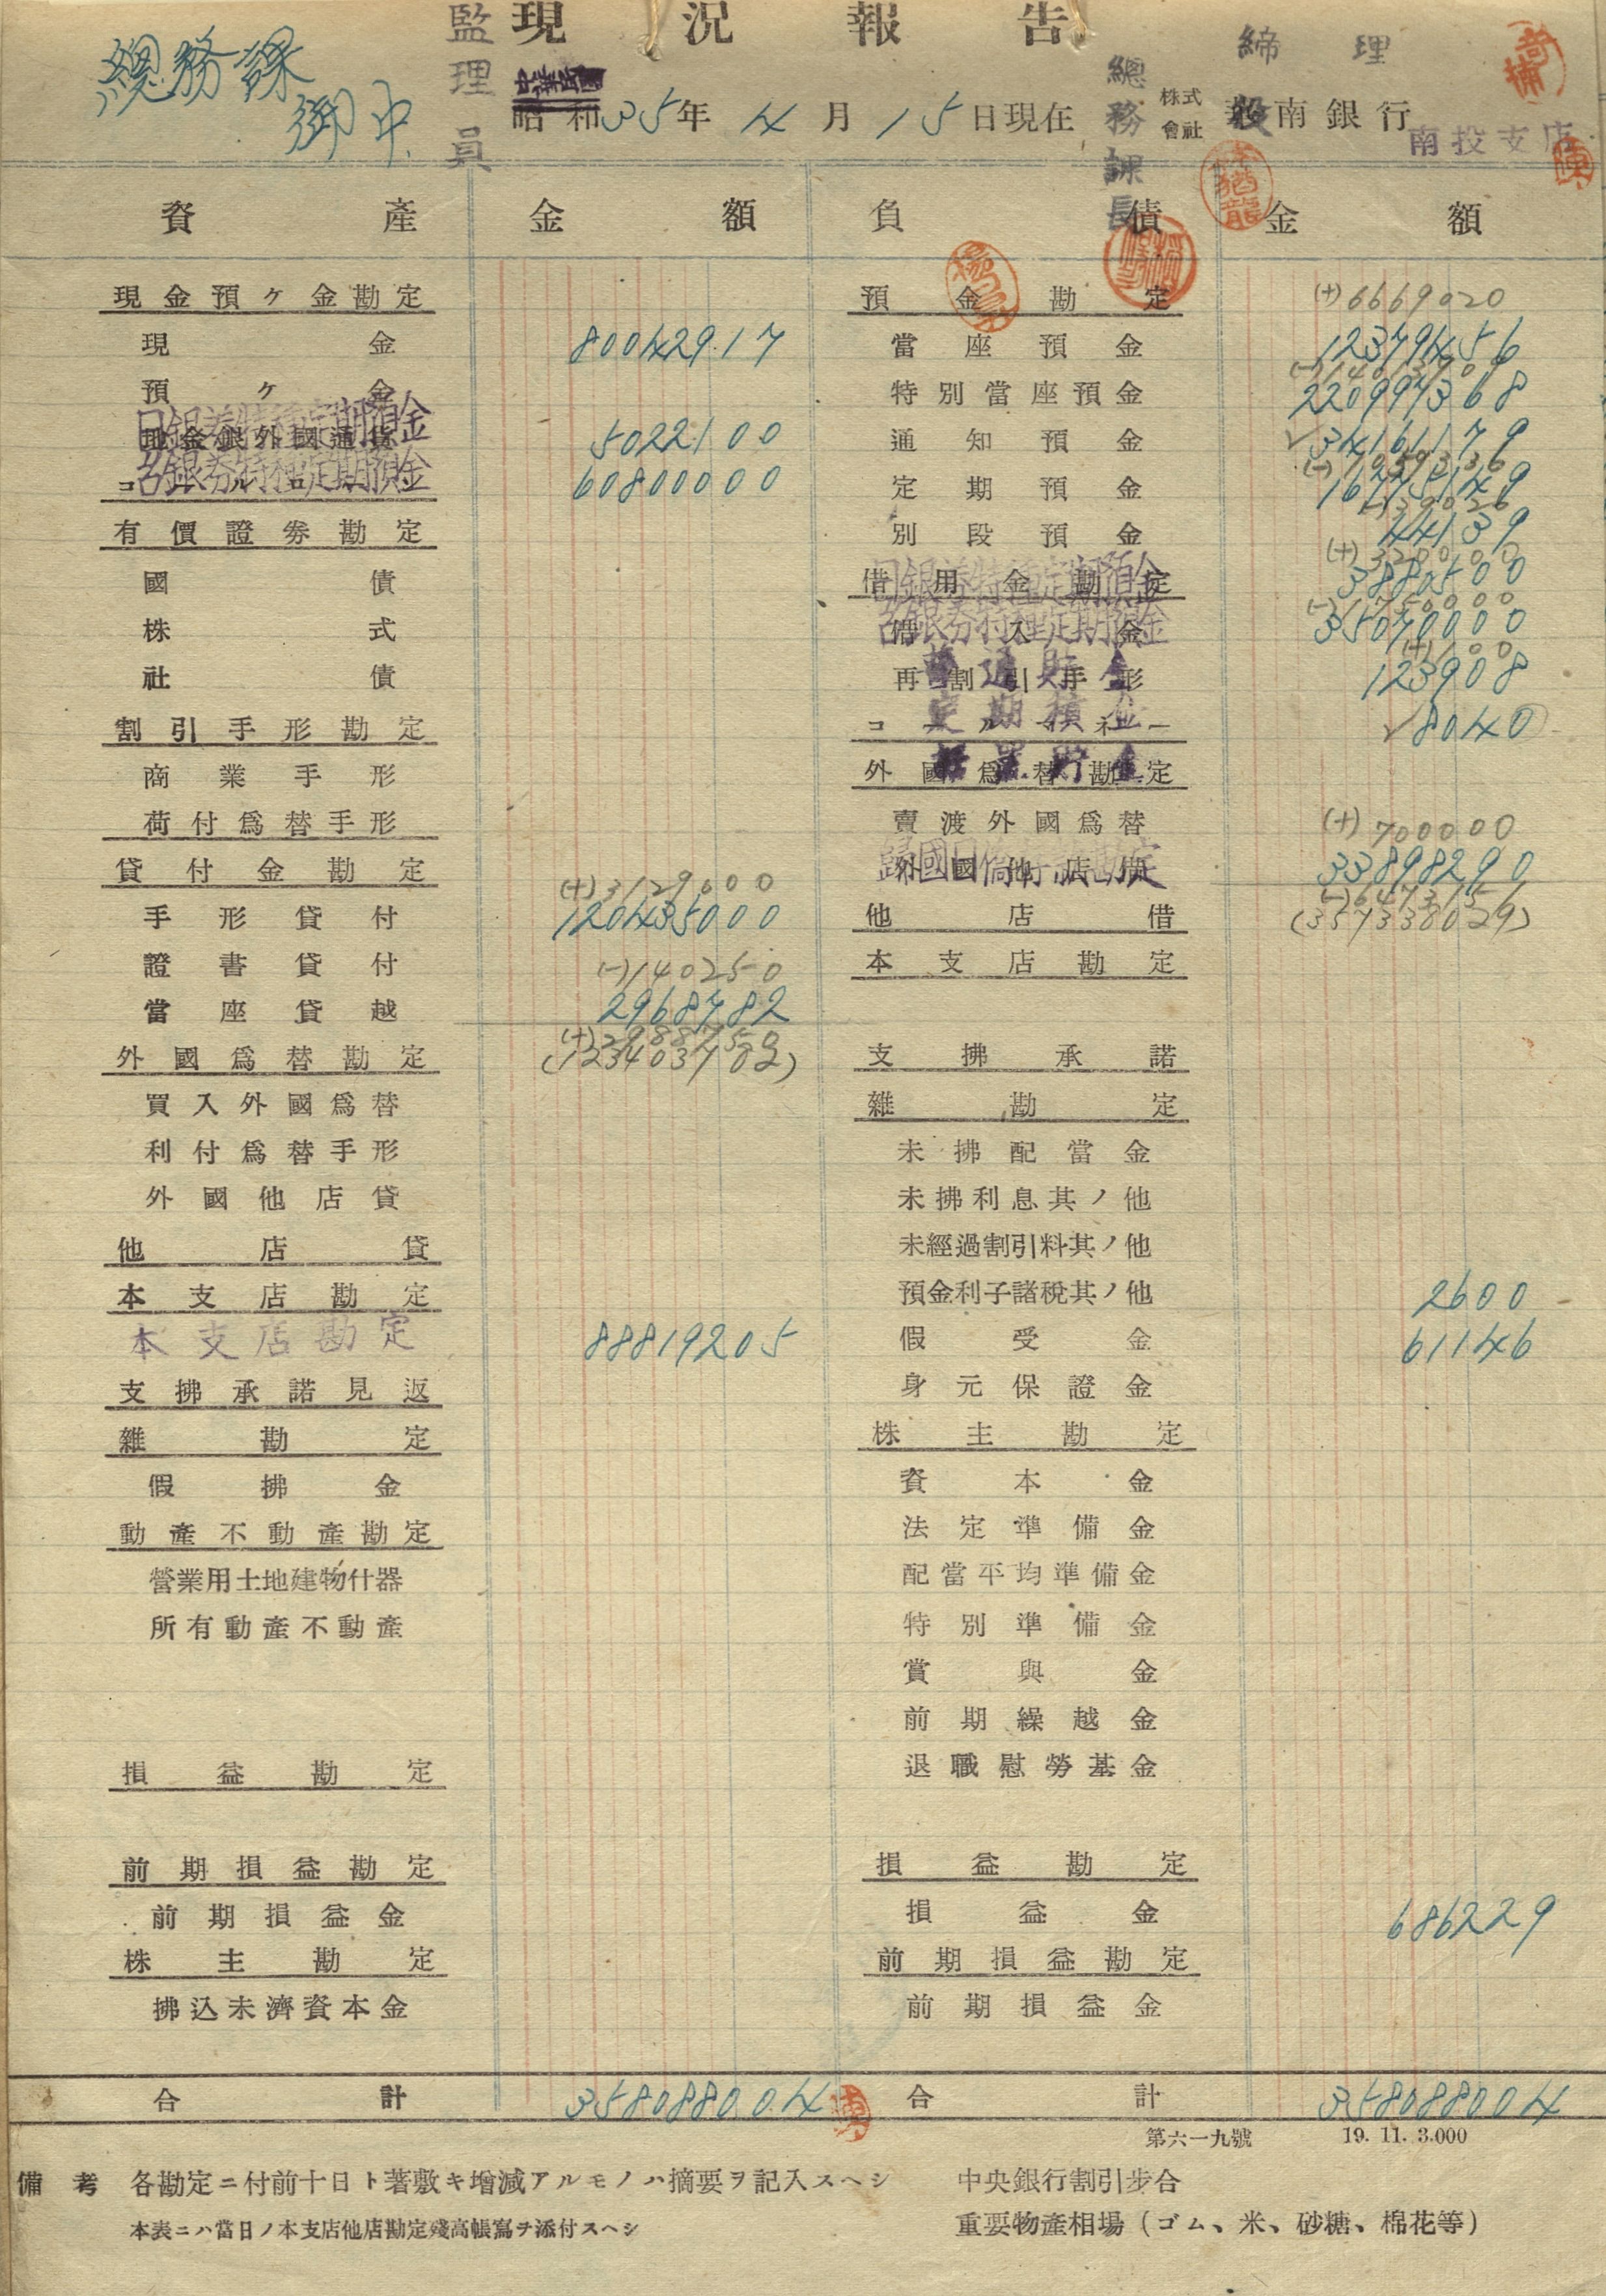 現況報告
總務課
御中
監理員
中華民國
昭和35年 4月15日現在
總務課長
締理
株式會社
華南銀行
南投支店
資產 金額 負債 金額
現金預ヶ金勘定
現金 80042917
預ヶ金
日銀券特種定期預金
地金銀外國通貨 5022100
台銀券特種定期預金 60800000
有價證券勘定
國債
株式
社債
割引手形勘定
商業手形
荷付爲替手形
貸付金勘定
(+) 3129000
手形貸付 120435000
證書貸付 (-)140250
當座貸越 2968782
外國爲替勘定 (123403782)
買入外國爲替
利付爲替手形
外國他店貸
他店貸
本支店勘定
本支店勘定 88819205
支拂承諾見返
雜勘定
假拂金
動產不動產勘定
營業用土地建物什器
所有動產不動產
損益勘定
前期損益勘定
前期損益金
株主勘定
拂込未濟資本金
合計 358088004
預金勘定 (+) 6669020
當座預金 12379456
特別當座預金 220997368
通知預金 34161179
定期預金 16775149
別段預金 44139
借用金勘定
日銀券特種定期預金 3880500
台銀券特種定期預金 35070000
借入金
普通貯金
再割引手形 123908
定期積金
コールマネー 8040
外國爲替勘定
賣渡外國爲替 (+) 700000
歸國日僑存款勘定 33898290
外國他店借
他店借 (357338029)
本支店勘定
支拂承諾
雜勘定
未拂配當金
未拂利息其ノ他
未經過割引料其ノ他
預金利子諸稅其ノ他 2600
假受金 61146
身元保證金
株主勘定
資本金
法定準備金
配當平均準備金
特別準備金
賞與金
前期繰越金
退職慰勞基金
損益勘定
損益金 686229
前期損益勘定
前期損益金
合計 358088004
第六一九號 19. 11. 3.000
備考 各勘定ニ付前十日ト著敷キ增減アルモノハ摘要ヲ記入スヘシ
本表ニハ當日ノ本支店他店勘定殘高帳寫チ添付スヘシ
中央銀行割引步合
重要物產相場（ゴム、米、砂糖、棉花等）